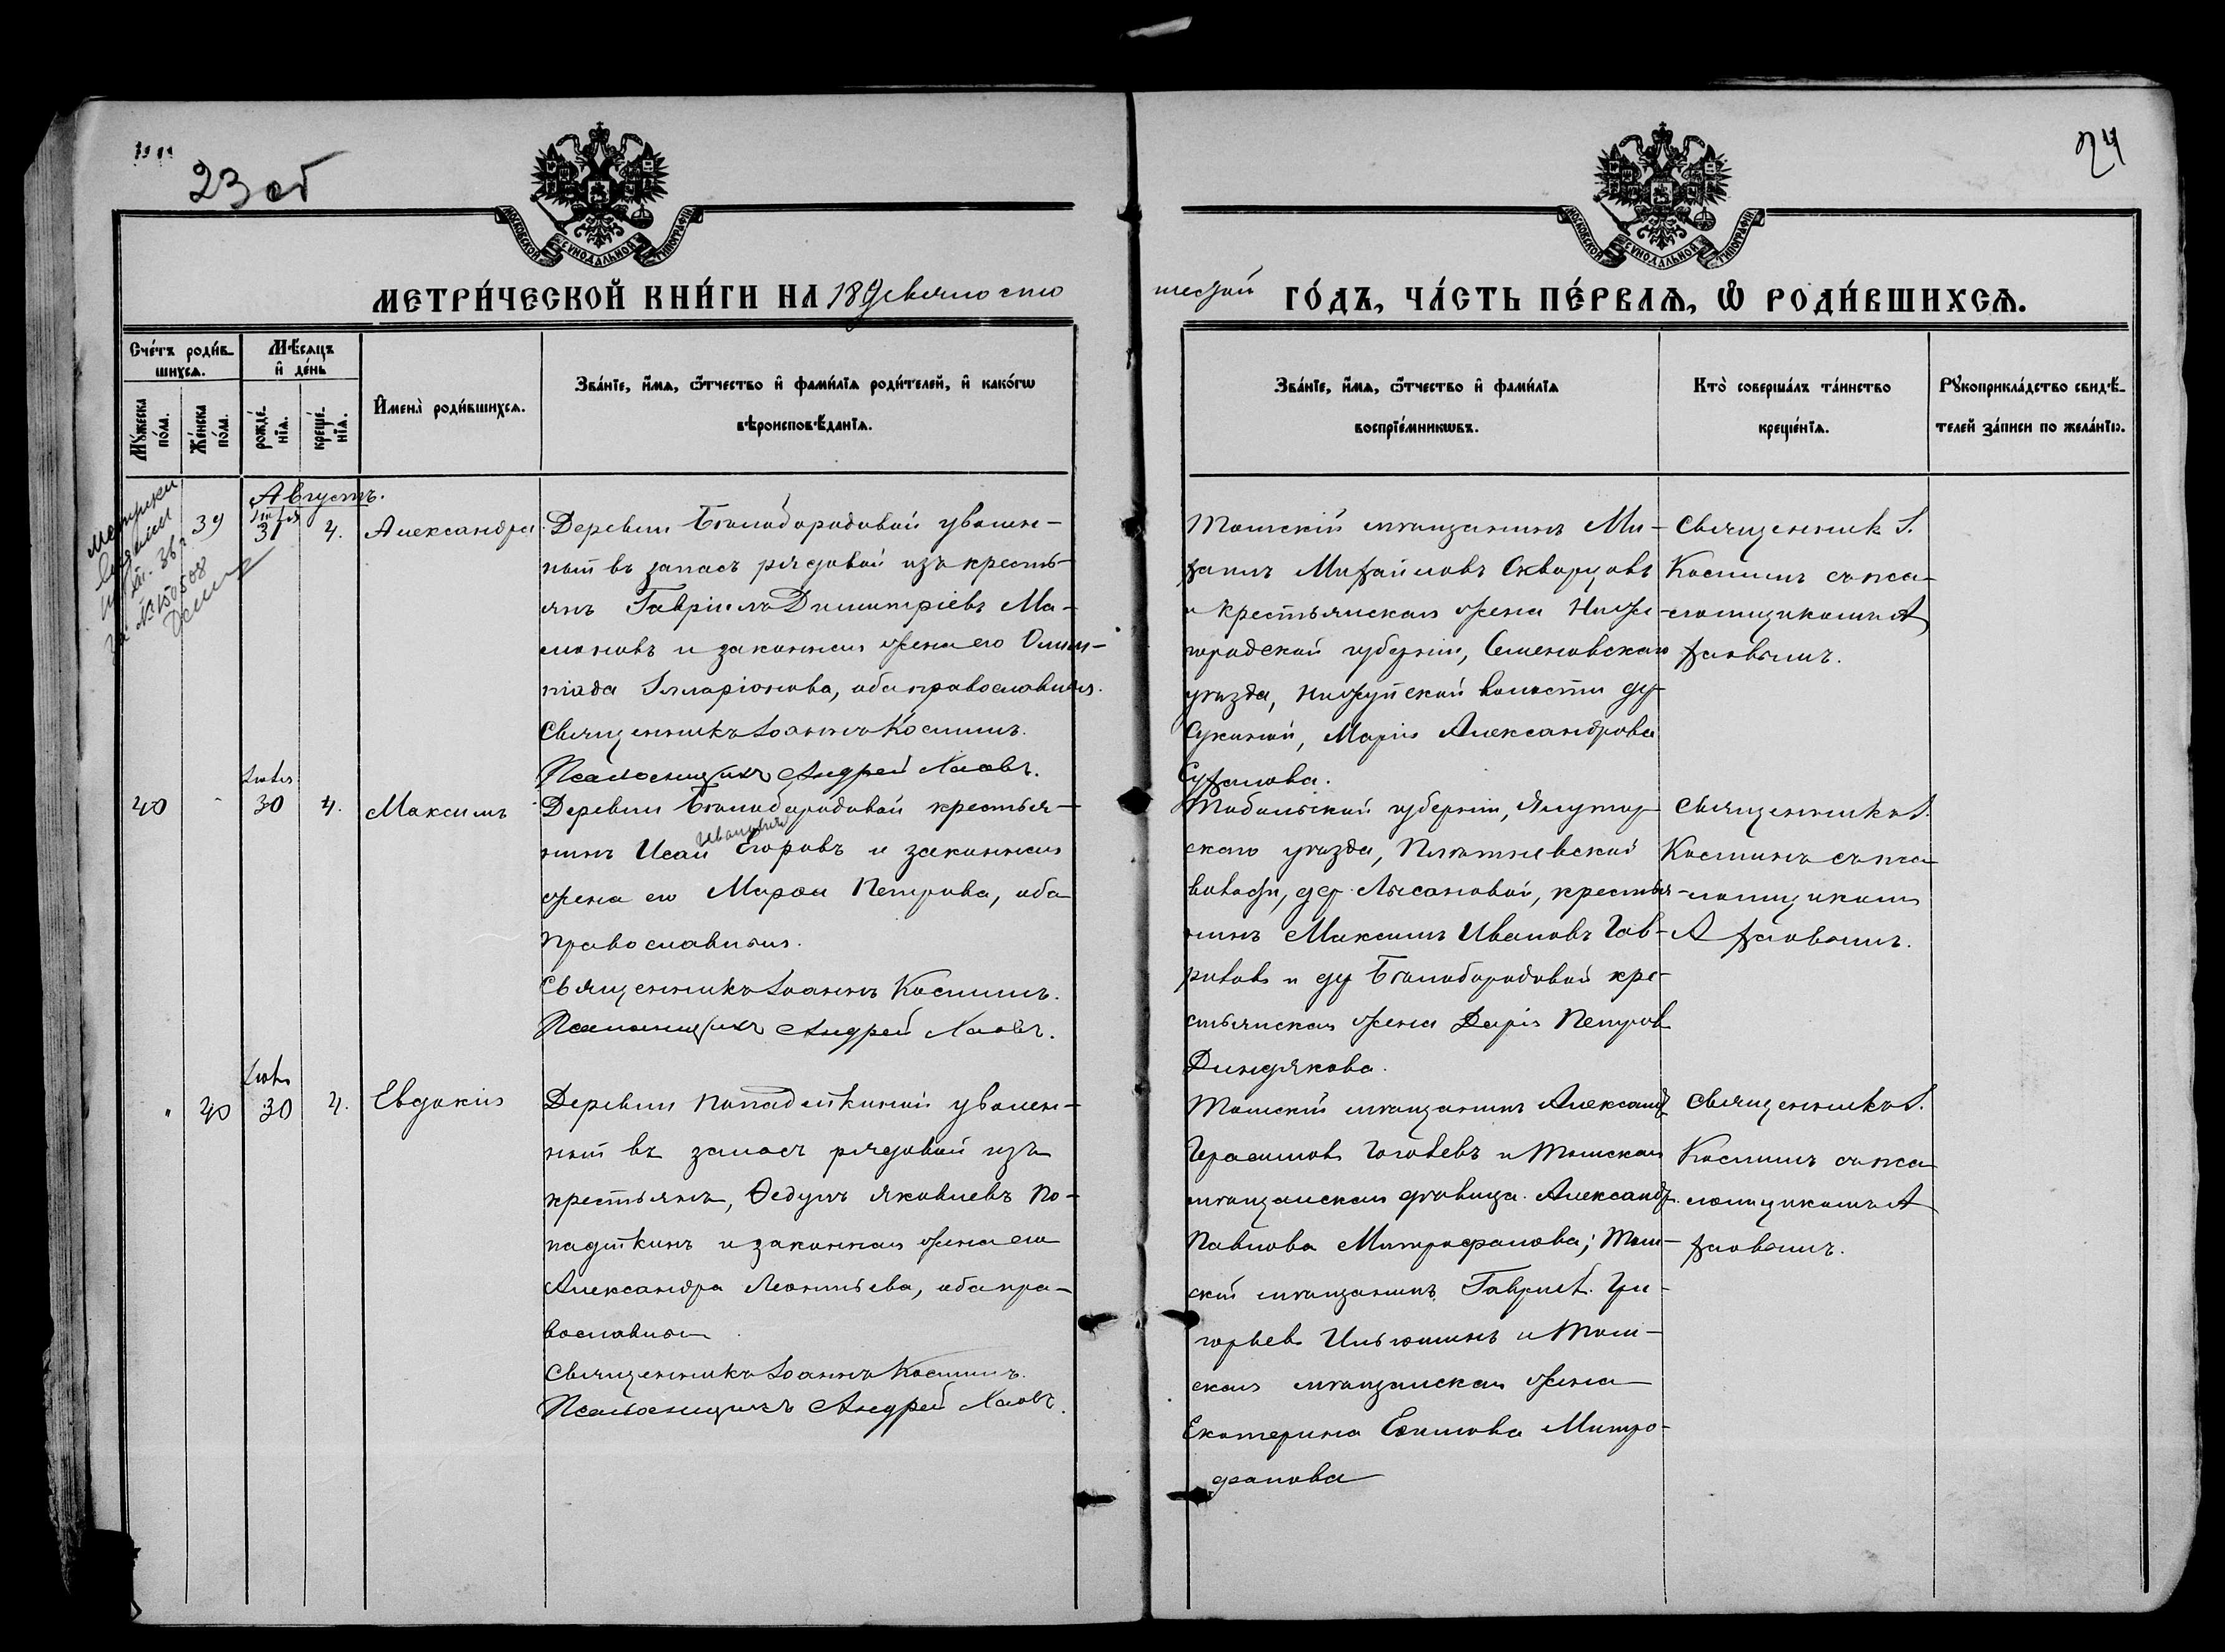 23 об
24
МОСКОВСКОЙ СУНОДАЛЬНОЙ ТИПОГРАФІИ
МОСКОВСКОЙ СУНОДАЛЬНОЙ ТИПОГРАФІИ
МЕТРИ́ЧЕСКОЙ КНИ́ГИ НА 189девяносто
шестой ГО́ДЪ, ЧА́СТЬ ПЕ́РВАѦ, Ѡ РОДИ́ВШИХСѦ.
Сче́тъ роди́в-
шихсѧ.
Мꙋ́жеска по́ла.
Же́нска по́ла.
Мѣ́сѧцъ
и҆ де́нь
рожде́-
нїѧ.
креще́-
нїѧ.
И҆мена̀ роди́вшихсѧ.
Зва́нїе, и҆́мѧ, ѻ҆́тчество и҆ фами́лїѧ роди́телей, и҆ како́гѡ
вѣроисповѣ́данїѧ.
Зва́нїе, и҆́мѧ, ѻ҆́тчество и҆ фами́лїѧ
воспрїе́мникѡвъ.
Кто̀ соверша́лъ та́инство
креще́нїѧ.
Рꙋкоприкла́дство свидѣ́-
телей за́писи по жела́нїю.
метрики
взамен
за № 150508
Августъ.
39
Іюля
31
4.
Александра
Деревни Белобородовой уволен-
ный въ запасъ рядовой изъ кресть-
янъ Гавріилъ Димитріевъ Ма-
моновъ и законная жена его Олим-
піада Илларіонова, оба православныя.
Священникъ Іоаннъ Косминъ.
Псаломщикъ Андрей Хаовъ.
Томскій мѣщанинъ Ми-
хаилъ Михайловъ Скворцовъ
и крестьянская жена Ниже-
городской губерніи, Семеновскаго
уѣзда, волости дер
Марія Александрова
Суханова.
Священник І.
Косминъ съ пса-
ломщикомъ А
Хаовымъ.
40
-
Іюля
30
4.
Максимъ
Деревни Белобородовой крестья-
Ивановичъ
нинъ Исай Егоровъ и законная
жена его Марѳа Петрова, оба
православныя.
Священникъ Іоаннъ Косминъ.
Псаломщикъ Андрей Хаовъ.
Тобольской губерніи, Ялутор-
скаго уѣзда, Плотневской
волости, дер. Лысановой, крестья-
нинъ Максимъ Ивановъ Гав-
риловъ и дер Белобородовой кре-
стьянская жена Дарія Петров
Диндякова.
Священникъ І.
Косминъ съ пса-
ломщикомъ
А Хаовымъ.
"
40
Іюля
30
4.
Евдокія
Деревни Попадейкиной уволен-
ный въ запасъ рядовой изъ
крестьянъ, Ѳедулъ Яковлевъ По-
падейкинъ и законная жена его
Александра Леонтьева, оба пра-
вославныя
Священникъ Іоаннъ Косминъ.
Псаломщикъ Андрей Хаовъ.
Томскій мѣщанинъ Александр
Герасимовъ Гоголевъ и Томская
мѣщанская дѣвица Александр.
Павлова Митрофанова; Том-
скій мѣщанинъ Гаврилъ Гри-
горьевъ Ильюшинъ и Том-
ская мѣщанская жена
Екатерина Ефимова Митро-
фанова
Священникъ І.
Косминъ съ пса-
ломщикомъ А
Хаовымъ.